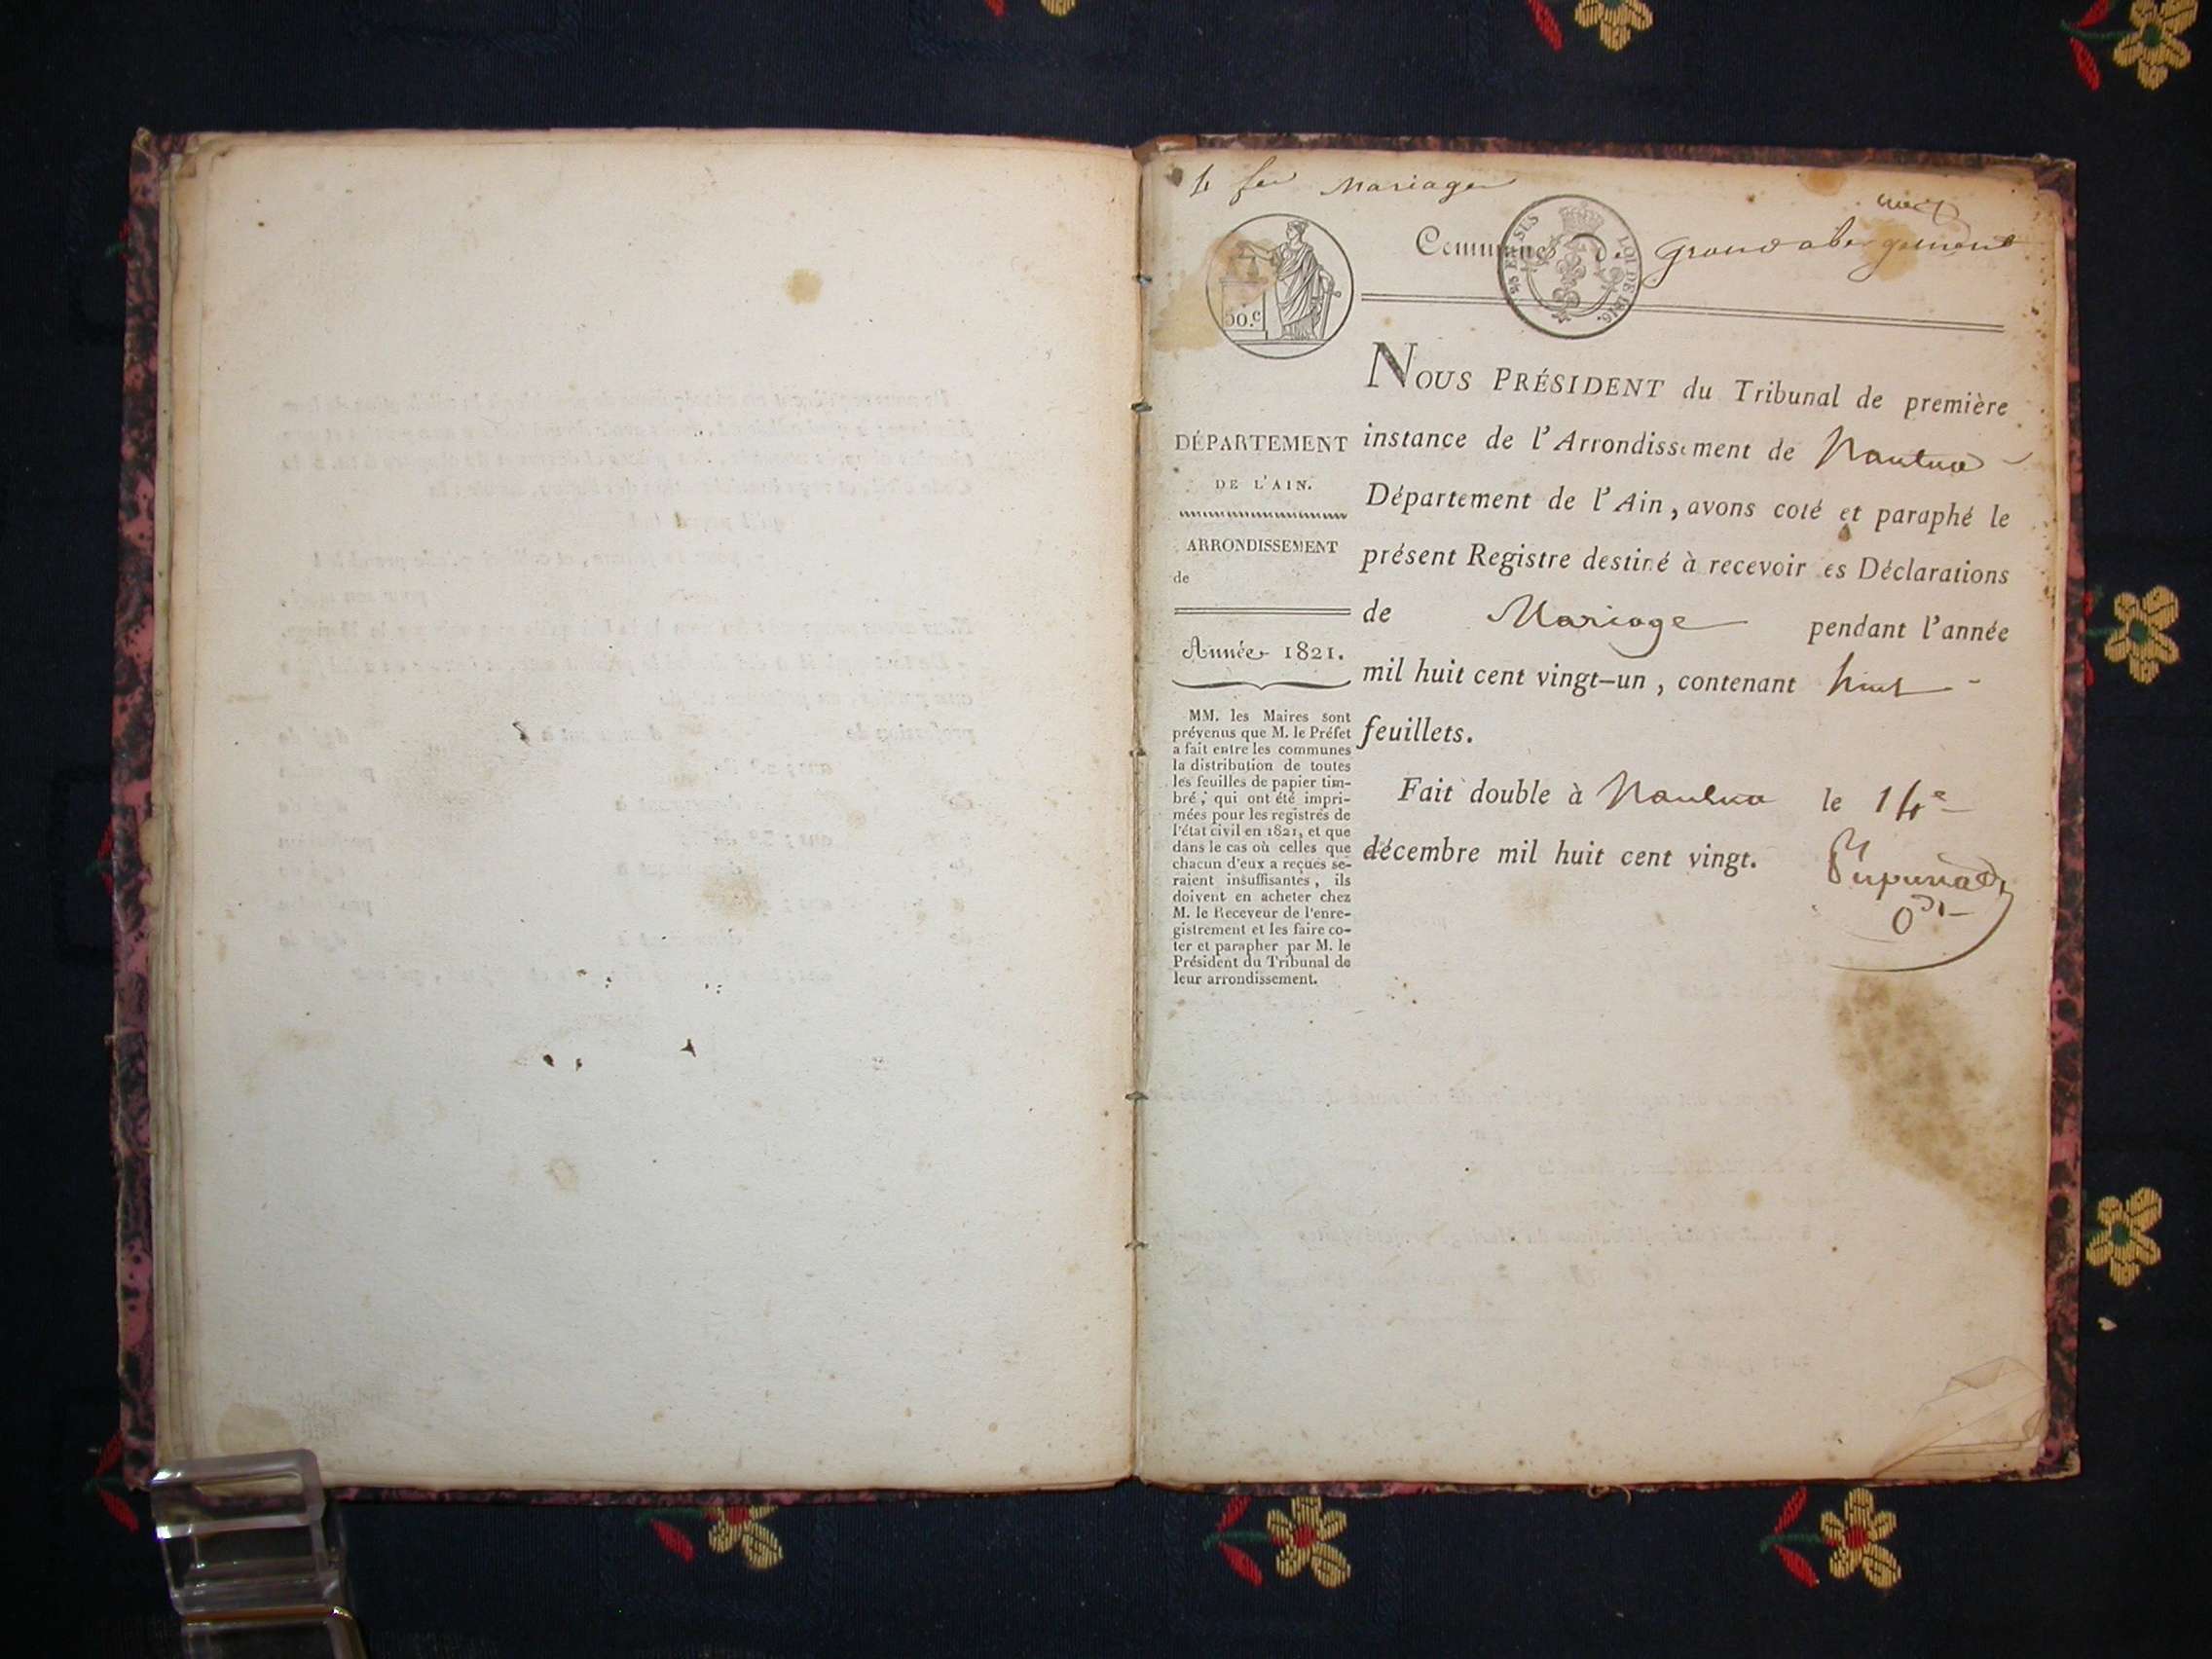 4 feu Mariages
Commune de grand abergement
50.c
¼ EN SUS
LOI DE 1816.
NOUS PRÉSIDENT du Tribunal de première
instance de l'Arrondissement de Nantua
Département de l'Ain, avons coté et paraphé le
présent Registre destiné à recevoir es Déclarations
de Mariage pendant l'année
mil huit cent vingt-un, contenant huit
feuillets.
Fait double à Nantua le 14e
décembre mil huit cent vingt.
DÉPARTEMENT
DE L'AIN.
ARRONDISSEMENT
de
Année 1821.
MM. les Maires sont
prévenus que M. le Préfet
a fait entre les communes
la distribution de toutes
les feuilles de papier tim-
bré, qui ont été impri-
mées pour les registres de
l'état civil en 1821, et que
dans le cas où celles que
chacun d'eux a reçues se-
raient insuffisantes, ils
doivent en acheter chez
M. le Receveur de l'enre-
gistrement et les faire co-
ter et parapher par M. le
Président du Tribunal de
leur arrondissement.